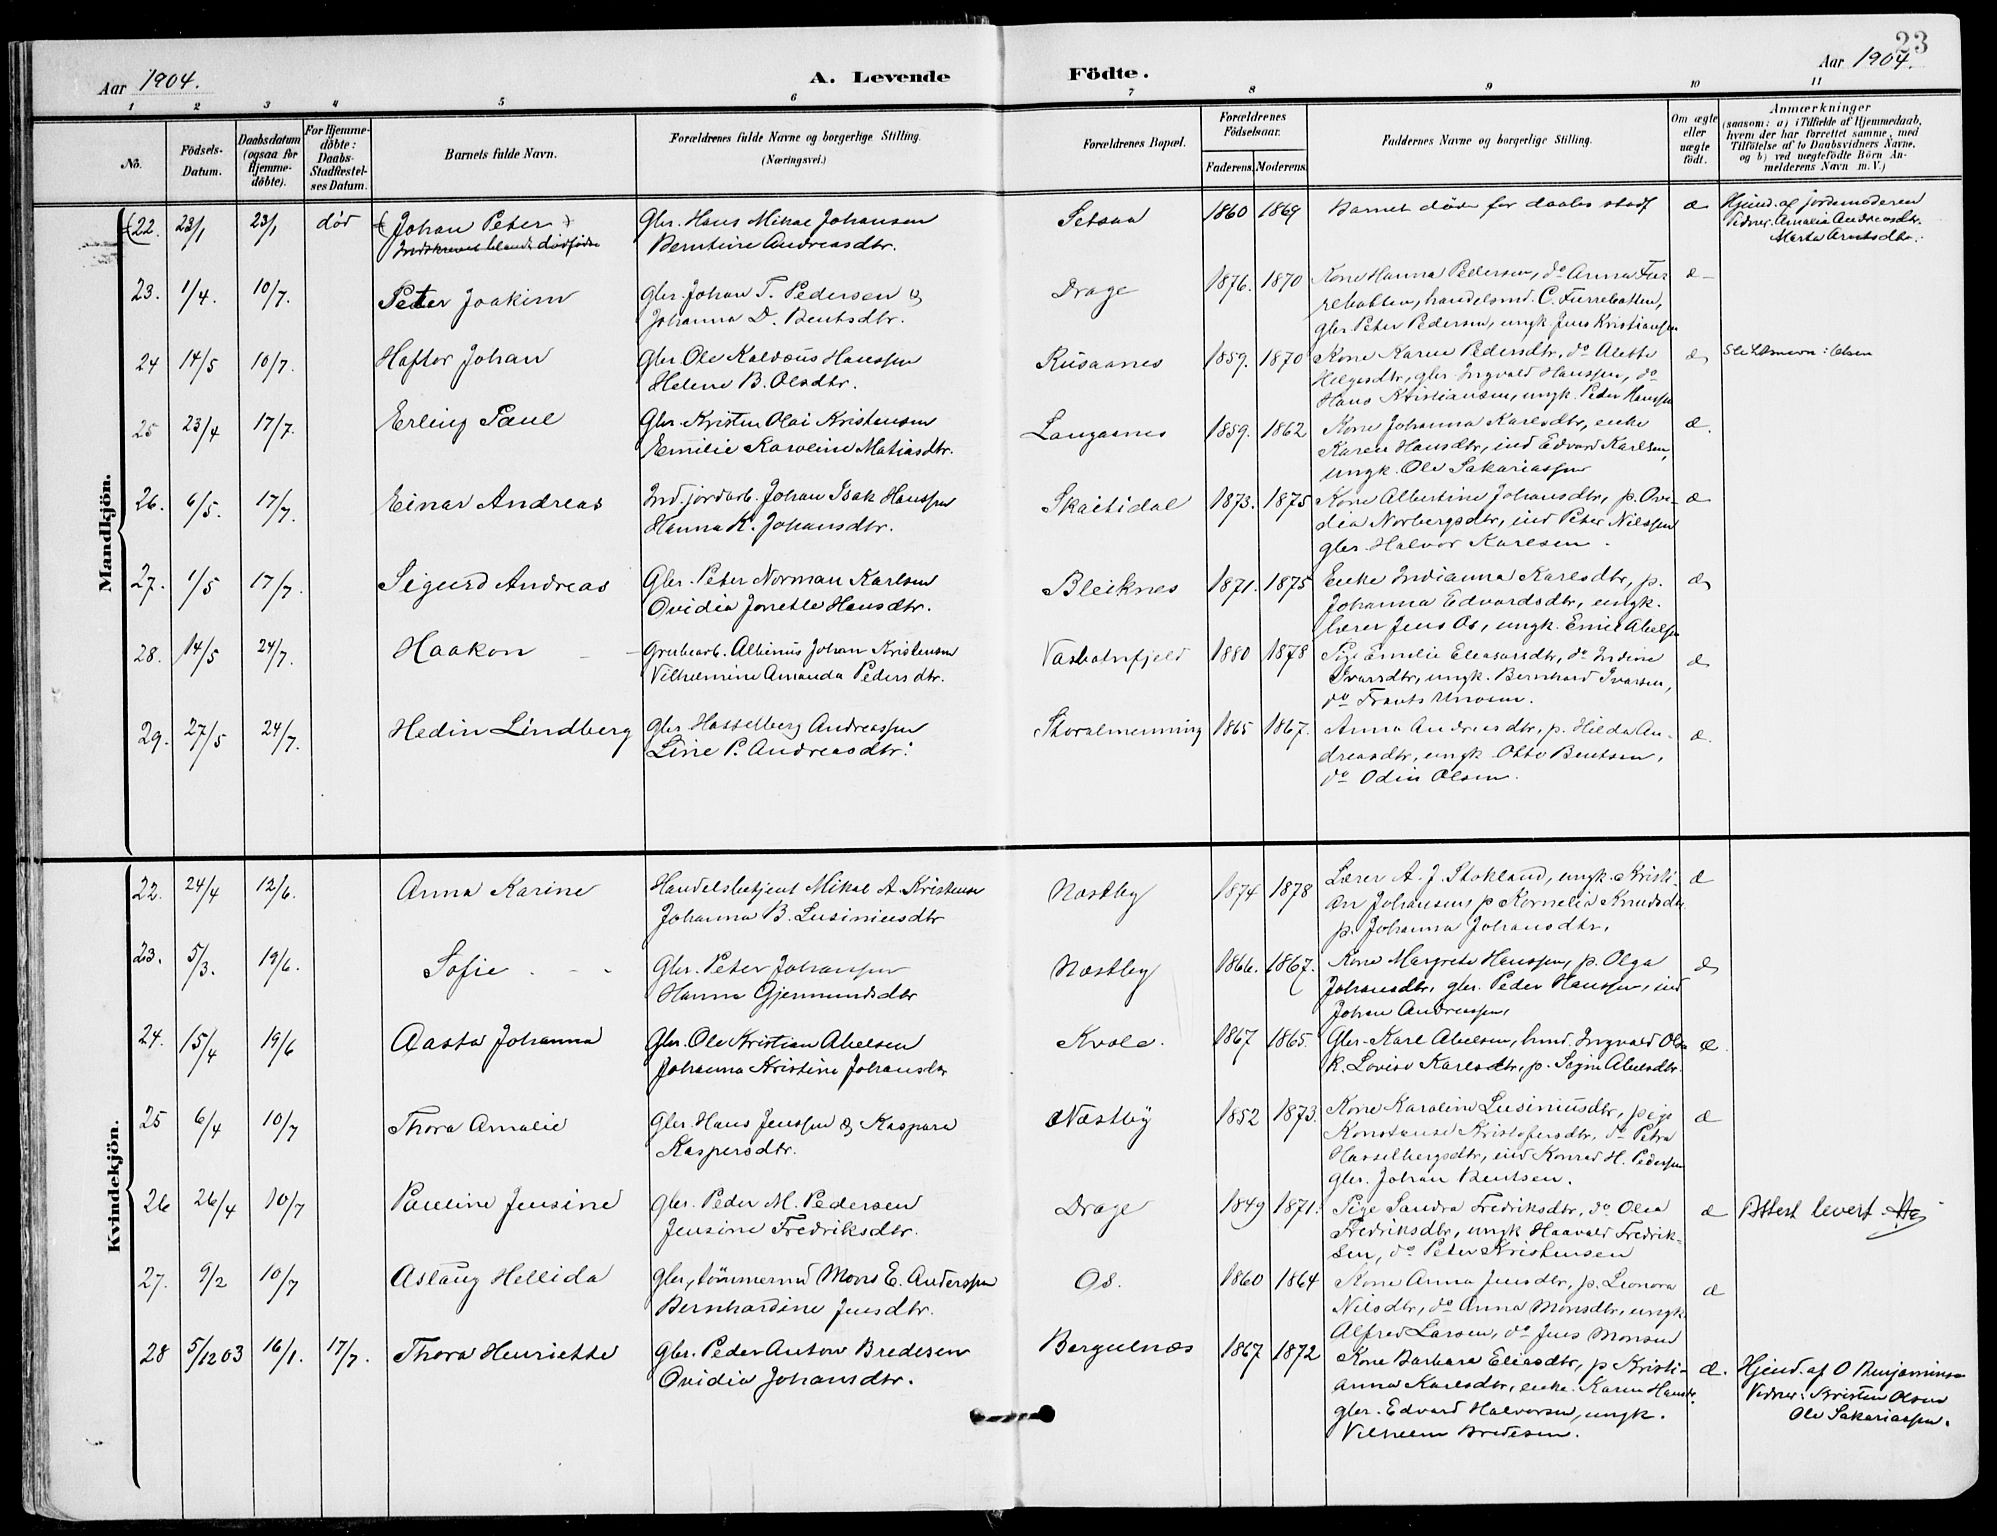 23
Aar 1904.
A. Levende Födte.
Aar 1904.
1 2 3 4 5 6 7 8 9 10 11
Nô.
Födsels-Datum.
Daabsdatum (ogsaa for Hjemme-döbte).
For Hjemme-döbte: Daabs-Stadfæstelses Datum.
Barnets fulde Navn.
Forældrenes fulde Navne og borgerlige Stilling.
(Næringsvei.)
Forældrenes Bopæl.
Forældrenes Födselsaar.
Faderens. Moderens.
Faddernes Navne og borgerlige Stilling.
Om ægte eller uægte födt.
Anmærkninger
(saasom: a) i Tilfælde af Hjemmedaab,
hvem der har forrettet samme, med
Tilföielse af to Daabsvidners Navne,
og b) ved uægtefödte Börn An-
melderens Navn m. V.)
Mandkjön.
22. 23/1 23/1 död Johan Peter Gbr. Hans Mikal Johansen Setsaa 1860 1869 Barnet döde før daabs stadf æ Hjemd. af jordemoderen
Indskrevet blandt dødfødte Berntine Andreasdtr. Vidner: Amalia Andreasdtr.
Marta Arntsdtr.
23. 1/4. 10/7. Peter Joakim Gbr. Johan T. Pedersen & Drage 1876. 1870 Kone Hanna Pedersen, do Anna Fur- æ
Johanna D. Bentsdtr. rebotten, handelsmd. C. Furrebotten,
gbr. Peter Pedersen, ungk. Jens Kristiansen
24 14/5 10/7. Haftor Johan Gbr. Ole Kaldæus Hanssen Rusaanes 1859. 1870 Kone Karen Pedersdtr, do Alette æ Slektsnavn: Olsen
Helene B. Olsdtr. Helgesdtr, gbr Ingvald Hanssen, do
Hans Kristiansen, ungk. Peder Hanssen
25 23/4 17/7. Erling Paul Gbr. Kristen Olai Kristensen Langaanes 1859. 1862 Kone Johanna Karlsdtr, enke æ.
Emilie Karoline Matiasdtr. Karen Hansdtr, ind Edvard Karlsen,
ungk. Ole Sakariassen
26. 6/5. 17/7. Einar Andreas Ind. jordarb. Johan Isak Hanssen Skaitidal 1873. 1875 Kone Albertine Johansdtr, p. Ovi- æ
Hanna K. Johansdtr. dia Norbergsdtr, ind Peter Nilssen
gbr. Halvor Karlsen.
27. 1/5 17/7. Sigurd Andreas Gbr. Peter Norman Karlsen Bleiknes 1871. 1875 Enke Indianna Karlsdtr, p. æ
Ovidia Jonette Hansdtr. Johanna Edvardsdtr, ungk.
lærer Jens Os, ungk. Emil Abelsen
28. 14/5 24/7. Haakon Grubearb. Albinus Johan Kristensen Vasbotnfjeld 1880 1878 Pige Emilie Eleasarsdtr, do Indine æ
Vilhelmine Amanda Pedersdtr. Ivarsdtr, ungk. Bernhard Ivarsen,
do Frants
29. 27/5 24/7. Hedin Lindberg Gbr Hasselberg Andreassen Storalmenning 1865 1867. Anna Andreasdtr, p. Hilda An- æ.
Line P. Andreasdtr. dreasdtr, ungk Otto Bentsen,
do Odin Olsen.
Kvindekjön.
22. 24/4 12/6. Anna Karine Handelsbetjent Mikal A. Kristensen Næstby 1874 1878 Lærer A. J. Stokland, ungk. Kristi- æ
Johanna B. Lusiniusdtr an Johansen, p Kornelia Knudsdtr
p. Johanna Johansdtr.
23. 5/3. 19/6. Sofie Gbr. Peter Johansen Næstby 1866. 1867. Kone Margrete Hanssen, p. Olga æ
Hanna Gjermundsdtr Johansdtr, gbr. Peder Hanssen, ind
Johan Andreassen,
24. 15/4 19/6 Aasta Johanna Gbr. Ole Kristian Abelsen Kvale. 1867 1865. Gbr. Karl Abelsen, hmd. Ingvald Olsen æ.
Johanna Kristine Johansdtr K. Lovise Karlsdtr, p. Signe Abelsdtr.
25 6/4 10/7 Thora Amalie Gbr. Hans Jenssen & Kaspara Næstby 1852 1873. Kone Karoline Lusiniusdtr, pige æ
Kaspersdtr. Konstanse Kristofersdtr, do Petra
Hasselbergsdtr, ind Konrad H. Pedersen
gbr. Johan Bentsen.
26 26/4 10/7 Pauline Jensine Gbr. Peder M. Pedersen Drage 1849 1871. Pige Sandra Fredriksdtr, do Olea æ Attest levert.
Jensine Fredriksdtr. Fredriksdtr, ungk Haavald Fredrik-
sen, do Peter Kristensen
27. 9/2 10/7 Aslaug Hellida Gbr, tømmermd Mons E. Anderssen Os. 1860 1864 Kone Anna Jensdtr, p. Leonora æ
Bernhardine Jensdtr. Nilsdtr, do Anna Monsdtr, ungk
Alfred Larsen, do Jens Monsen
28 5/12 03 16/1. 17/7. Thora Henriette Gbr. Peder Anton Bredesen Bergulnæs 1867 1872 Kone Barbara Eliasdtr, p Kristi- æ. Hjemd. af O Benjaminsen
Ovidia Johansdtr. anna Karlsdtr, enke. Karen Hansdtr. Vidner: Kristen Olsen
gbr. Edvard Halvorsen, ungk. Ole Sakariassen.
Vilhelm Bredesen.